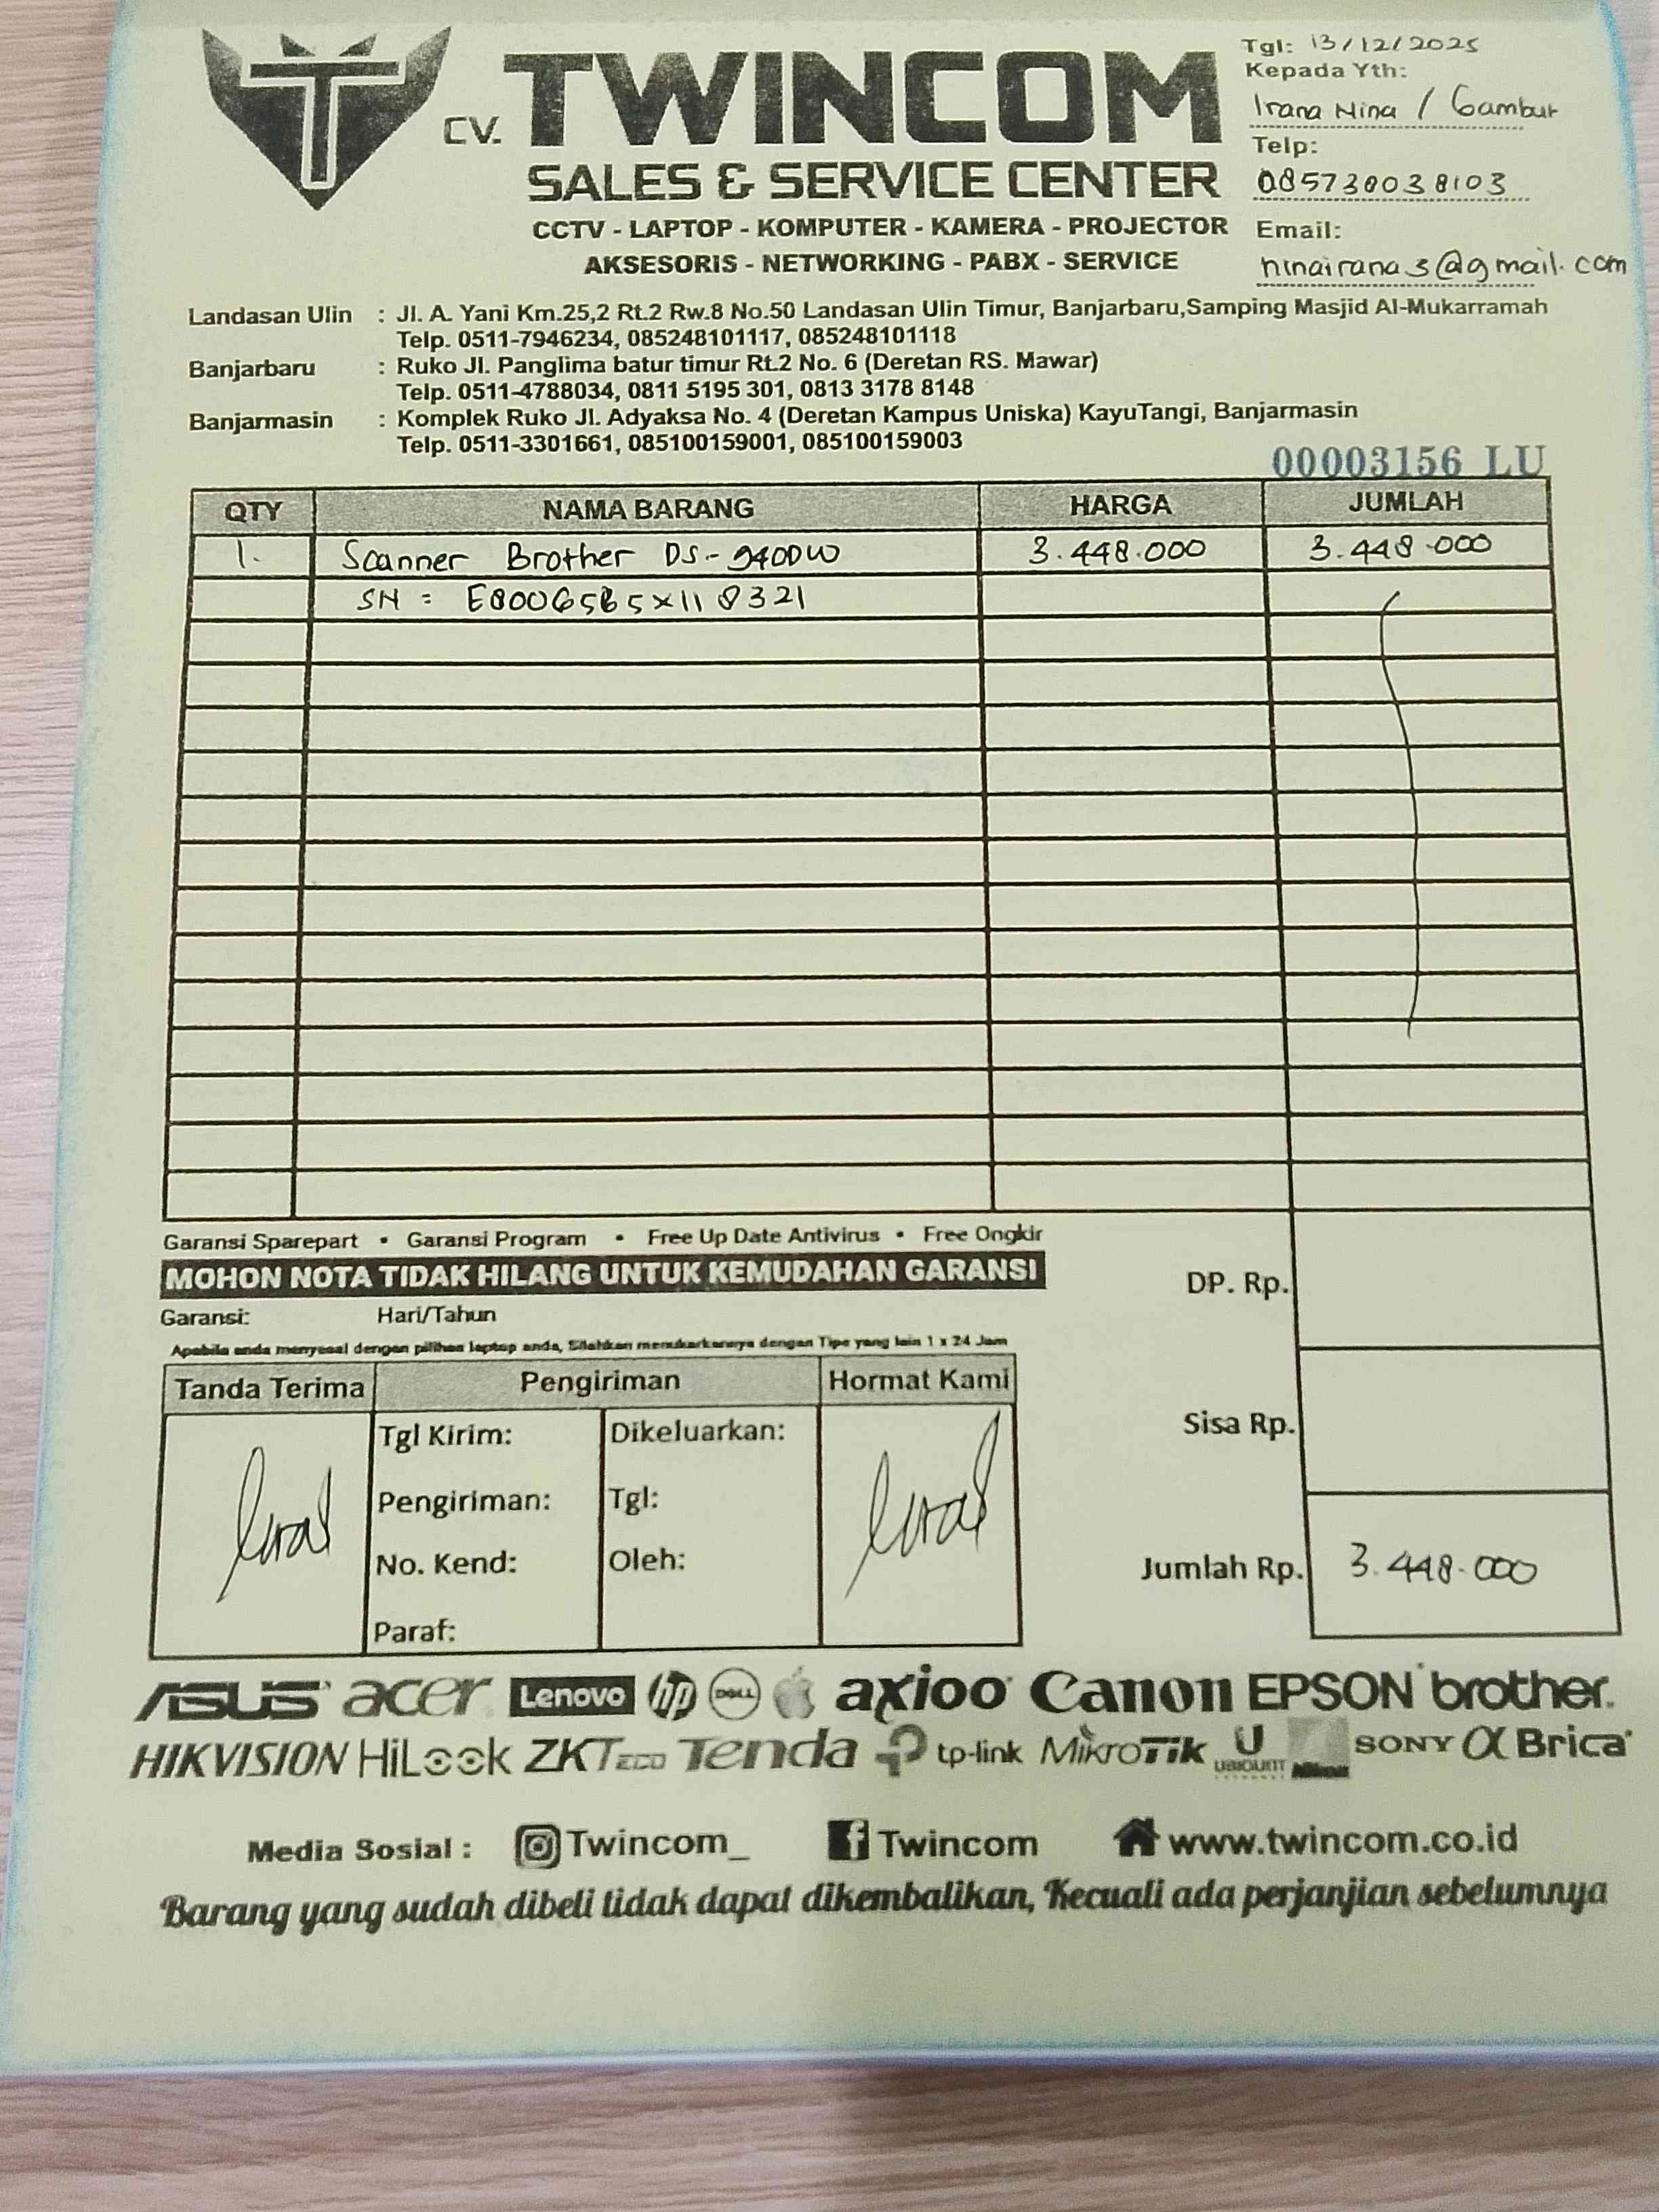 CV. TWINCOM
SALES & SERVICE CENTER
CCTV - LAPTOP - KOMPUTER - KAMERA - PROJECTOR
AKSESORIS - NETWORKING - PABX - SERVICE
Tgl: 13/12/2025
Kepada Yth:
Irana Nina / Gambut
Telp:
085738038103
Email:
ninairana3@gmail.com
Landasan Ulin : Jl. A. Yani Km.25,2 Rt.2 Rw.8 No.50 Landasan Ulin Timur, Banjarbaru,Samping Masjid Al-Mukarramah
Telp. 0511-7946234, 085248101117, 085248101118
Banjarbaru : Ruko Jl. Panglima batur timur Rt.2 No. 6 (Deretan RS. Mawar)
Telp. 0511-4788034, 0811 5195 301, 0813 3178 8148
Banjarmasin : Komplek Ruko Jl. Adyaksa No. 4 (Deretan Kampus Uniska) KayuTangi, Banjarmasin
Telp. 0511-3301661, 085100159001, 085100159003
00003156 LU
QTY NAMA BARANG HARGA JUMLAH
1. Scanner Brother DS-940DW 3.448.000 3.448.000
SN = E80065B5X118321
Garansi Sparepart • Garansi Program • Free Up Date Antivirus • Free Ongkir
MOHON NOTA TIDAK HILANG UNTUK KEMUDAHAN GARANSI
Garansi: Hari/Tahun
Apabila anda menyesal dengan pilihan laptop anda, Silahkan menukarkannya dengan Tipe yang lain 1 x 24 Jam
DP. Rp.
Sisa Rp.
Jumlah Rp. 3.448.000
Tanda Terima Pengiriman Hormat Kami
Tgl Kirim: Dikeluarkan:
Pengiriman: Tgl:
No. Kend: Oleh:
Paraf:
ASUS acer Lenovo hp DELL axioo Canon EPSON brother
HIKVISION HiLook ZKTECO Tenda tp-link MikroTik UBIQUITI Nikon SONY α Brica
Media Sosial : Twincom_ Twincom www.twincom.co.id
Barang yang sudah dibeli tidak dapat dikembalikan, Kecuali ada perjanjian sebelumnya